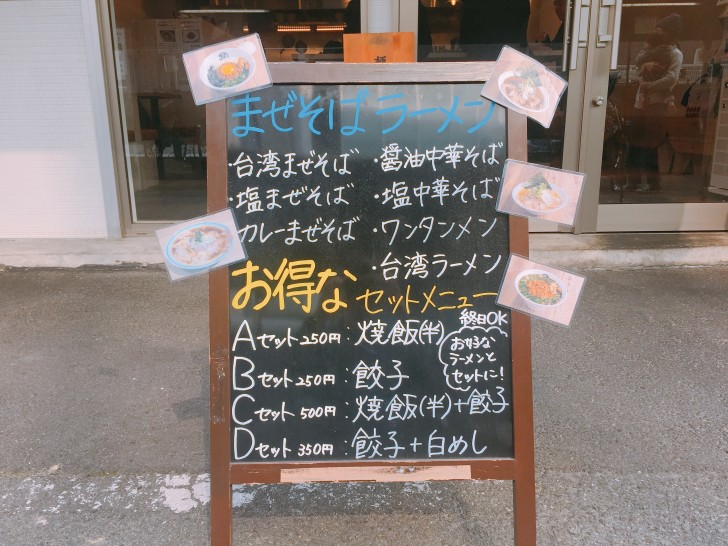 まぜそば ラーメン
・台湾まぜそば ・醤油中華そば
・塩まぜそば ・塩中華そば
カレーまぜそば ・ワンタンメン
・台湾ラーメン
お得な セットメニュー
終日OK
Aセット250円:焼飯(半)
Bセット250円:餃子
Cセット500円:焼飯(半)+餃子
Dセット350円:餃子+白めし
お好きな
ラーメンと
セットに!